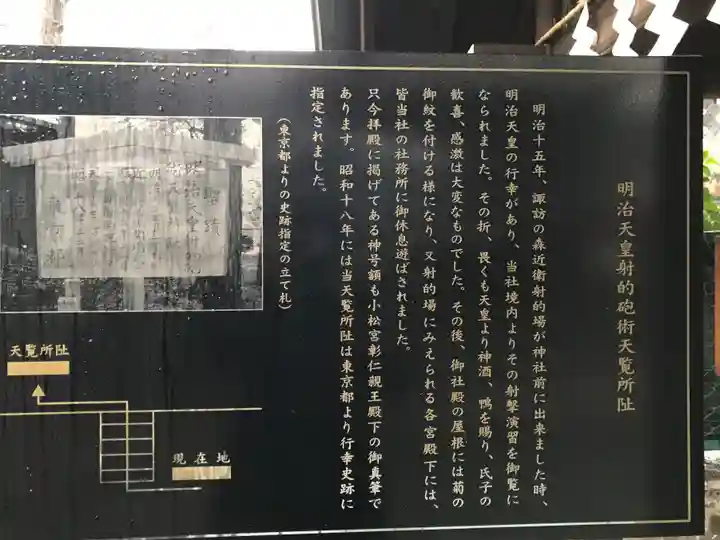 明治天皇射的砲術天覧所趾
明治十五年、諏訪の森近衛射的場が神社前に出来ました時、
明治天皇の行幸があり、当社境内よりその射撃演習を御覧に
なられました。その折、畏くも天皇より神酒、鴨を賜り、氏子の
歓喜、感激は大変なものでした。その後、御社殿の屋根には菊の
御紋を付ける様になり、又射的場にみえられる各宮殿下には、
皆当社の社務所に御休息遊ばされました。
只今拝殿に掲げてある神号額も小松宮彰仁親王殿下の御真筆で
あります。昭和十八年には当天覧所趾は東京都より行幸史跡に
指定されました。
(東京都よりの史跡指定の立て札)
聖蹟
東京都
天覧所趾
現在地